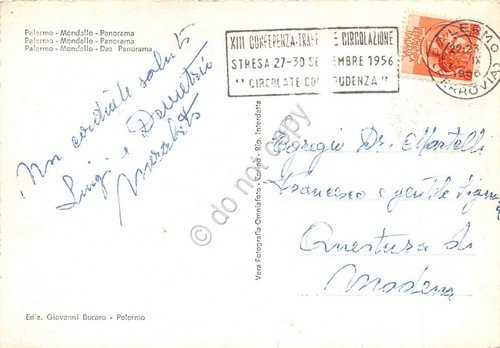 Palermo - Mondello - Panorama
Palermo - Mondello - Panorama
Palermo - Mondello - Das Panorama
XIII CONFERENZA-TRAFF E CIRCOLAZIONE
STRESA 27-30 SETTEMBRE 1956
"CIRCOLATE CON PRUDENZA"
PALERMO
1956
FERROVIA
Un cordiale saluto
Luigi e Demetrio
Egregio Dr. Martelli
Francesco e gentile Signora
Questura di
Modena
Vera Fotografia Omniafoto - Torino - Rip. Interdetta
Ediz. Giovanni Bucaro - Palermo
do not copy